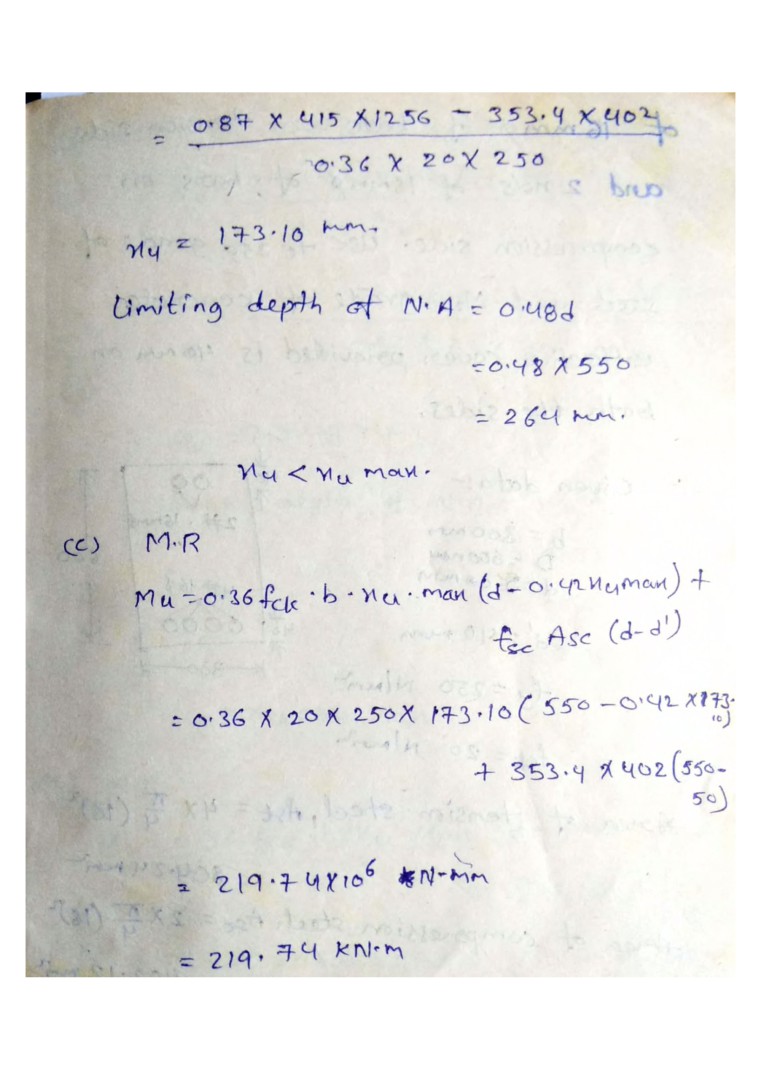 = 0.87 × 415 × 1256 - 353.4 × 402
0.36 × 20 × 250
xu = 173.10 mm.
Limiting depth of N.A = 0.48d
= 0.48 × 550
= 264 mm.
xu < xu max.
(c) M.R
Mu = 0.36 fck · b · xu · max (d - 0.42 xu max) +
fsc Asc (d - d')
= 0.36 × 20 × 250 × 173.10 (550 - 0.42 × 173.10)
+ 353.4 × 402 (550 - 50)
= 219.74 × 10⁶ N-mm
= 219.74 KN.m